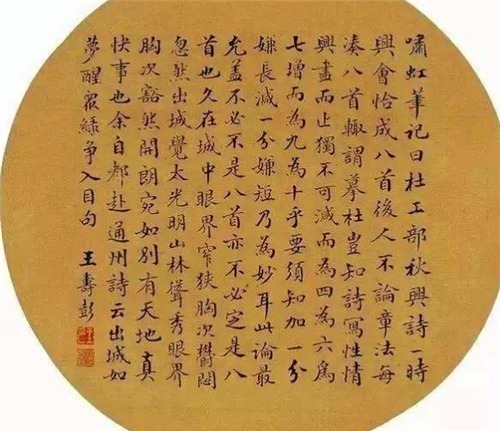 嘯虹筆記曰杜工部秋興詩一時
興會恰成八首後人不論章法每
湊八首輒謂摹杜豈知詩寫性情
興盡而止獨不可減而為四為六為
七增而為九為十乎要須知加一分
嫌長減一分嫌短乃為妙耳此論最
允蓋不必不是八首亦不必定是八
首也久在城中眼界窄狹胸次鬱悶
忽然出城覺太光明山林聳秀眼界
胸次豁然開朗宛如別有天地真
快事也余自都赴通州詩云出城如
夢醒眾綠爭入目句 王壽彭